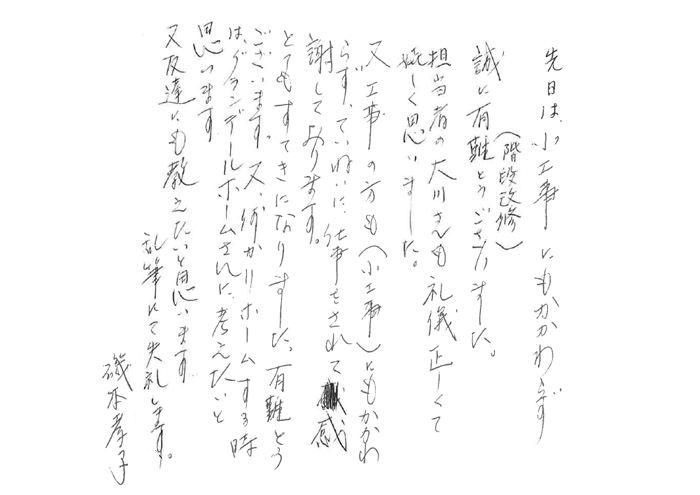 先日は、小工事にもかかわらず
（階段改修）
誠に有難とうございました。
担当者の大川さんも礼儀正しくて
嬉しく思いました。
又工事の方も（小工事）にもかかわ
らず、ていねいに仕事をされて感
謝しております。
とてもすてきになりました。有難とう
ございます。又、何かリホームする時
は、グランデールホームさんに考えたいと
思います
又友達にも教えたいと思います
乱筆にて失礼します。
磯本孝子